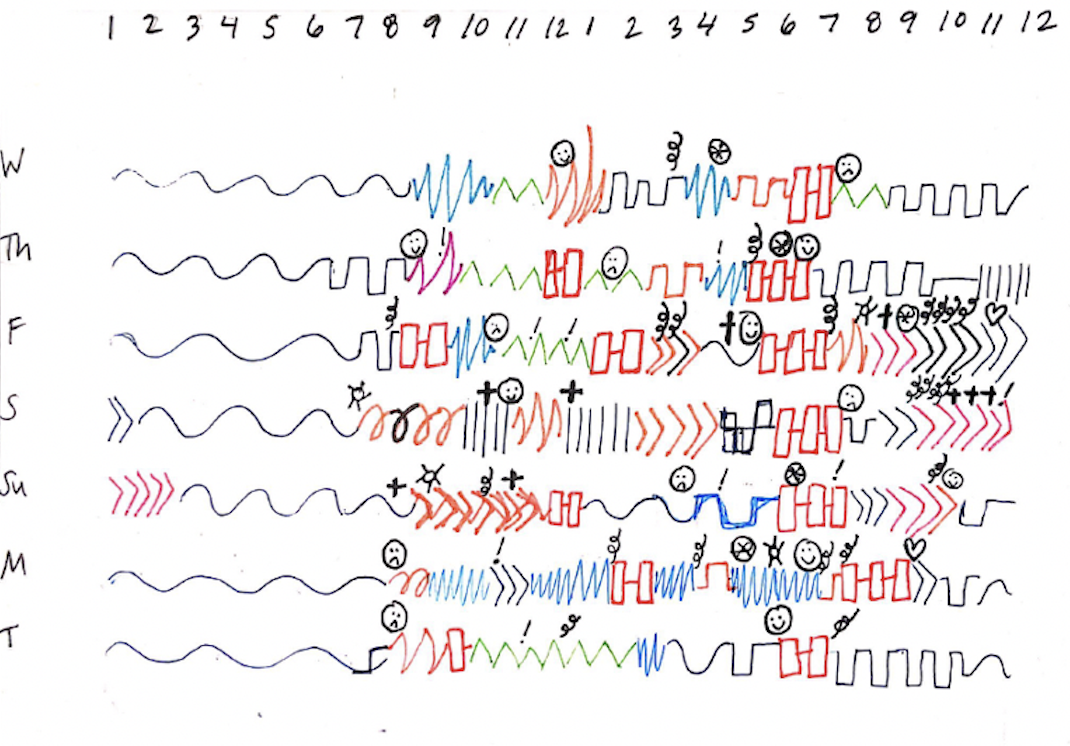 1 2 3 4 5 6 7 8 9 10 11 12 1 2 3 4 5 6 7 8 9 10 11 12
W
Th
F
S
Su
M
T